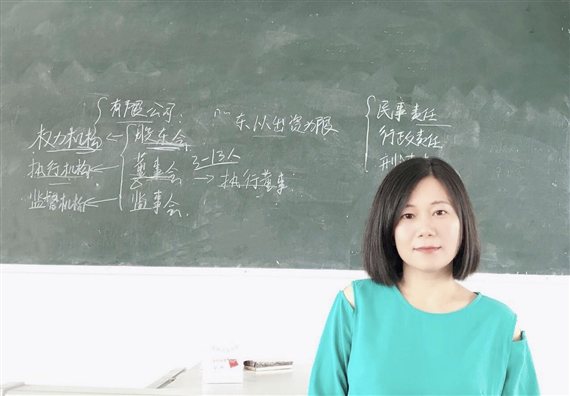 有限公司
东以出资为限
权力机构 ← 股东会
执行机构 ← 董事会 3-13人 → 执行董事
监督机构 ← 监事会
民事责任
行政责任
刑